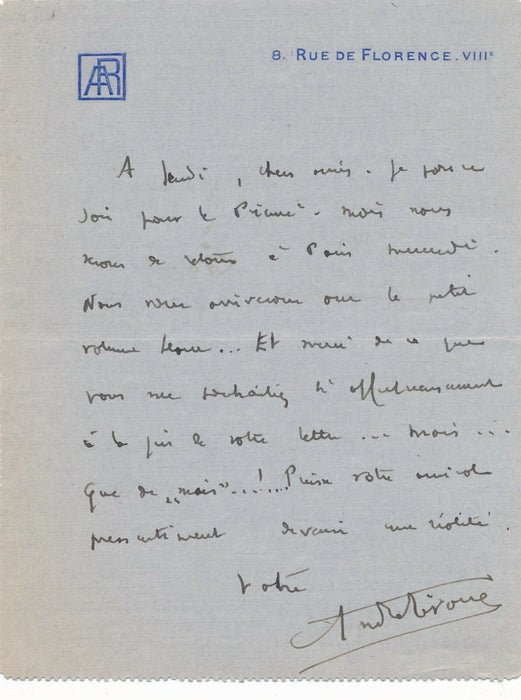 AR
8, RUE DE FLORENCE. VIIIe
A jeudi, chers amis. Je
soir pour le Piémont. mais nous
de à Paris mercredi.
Nous vous que le petit
volume ... Et merci de ce que
vous me souhaitez si affectueusement
à la fin de votre lettre ... mais ...
Que de „mais"...!... Puisse votre amical
pressentiment devenir une réalité.
Votre